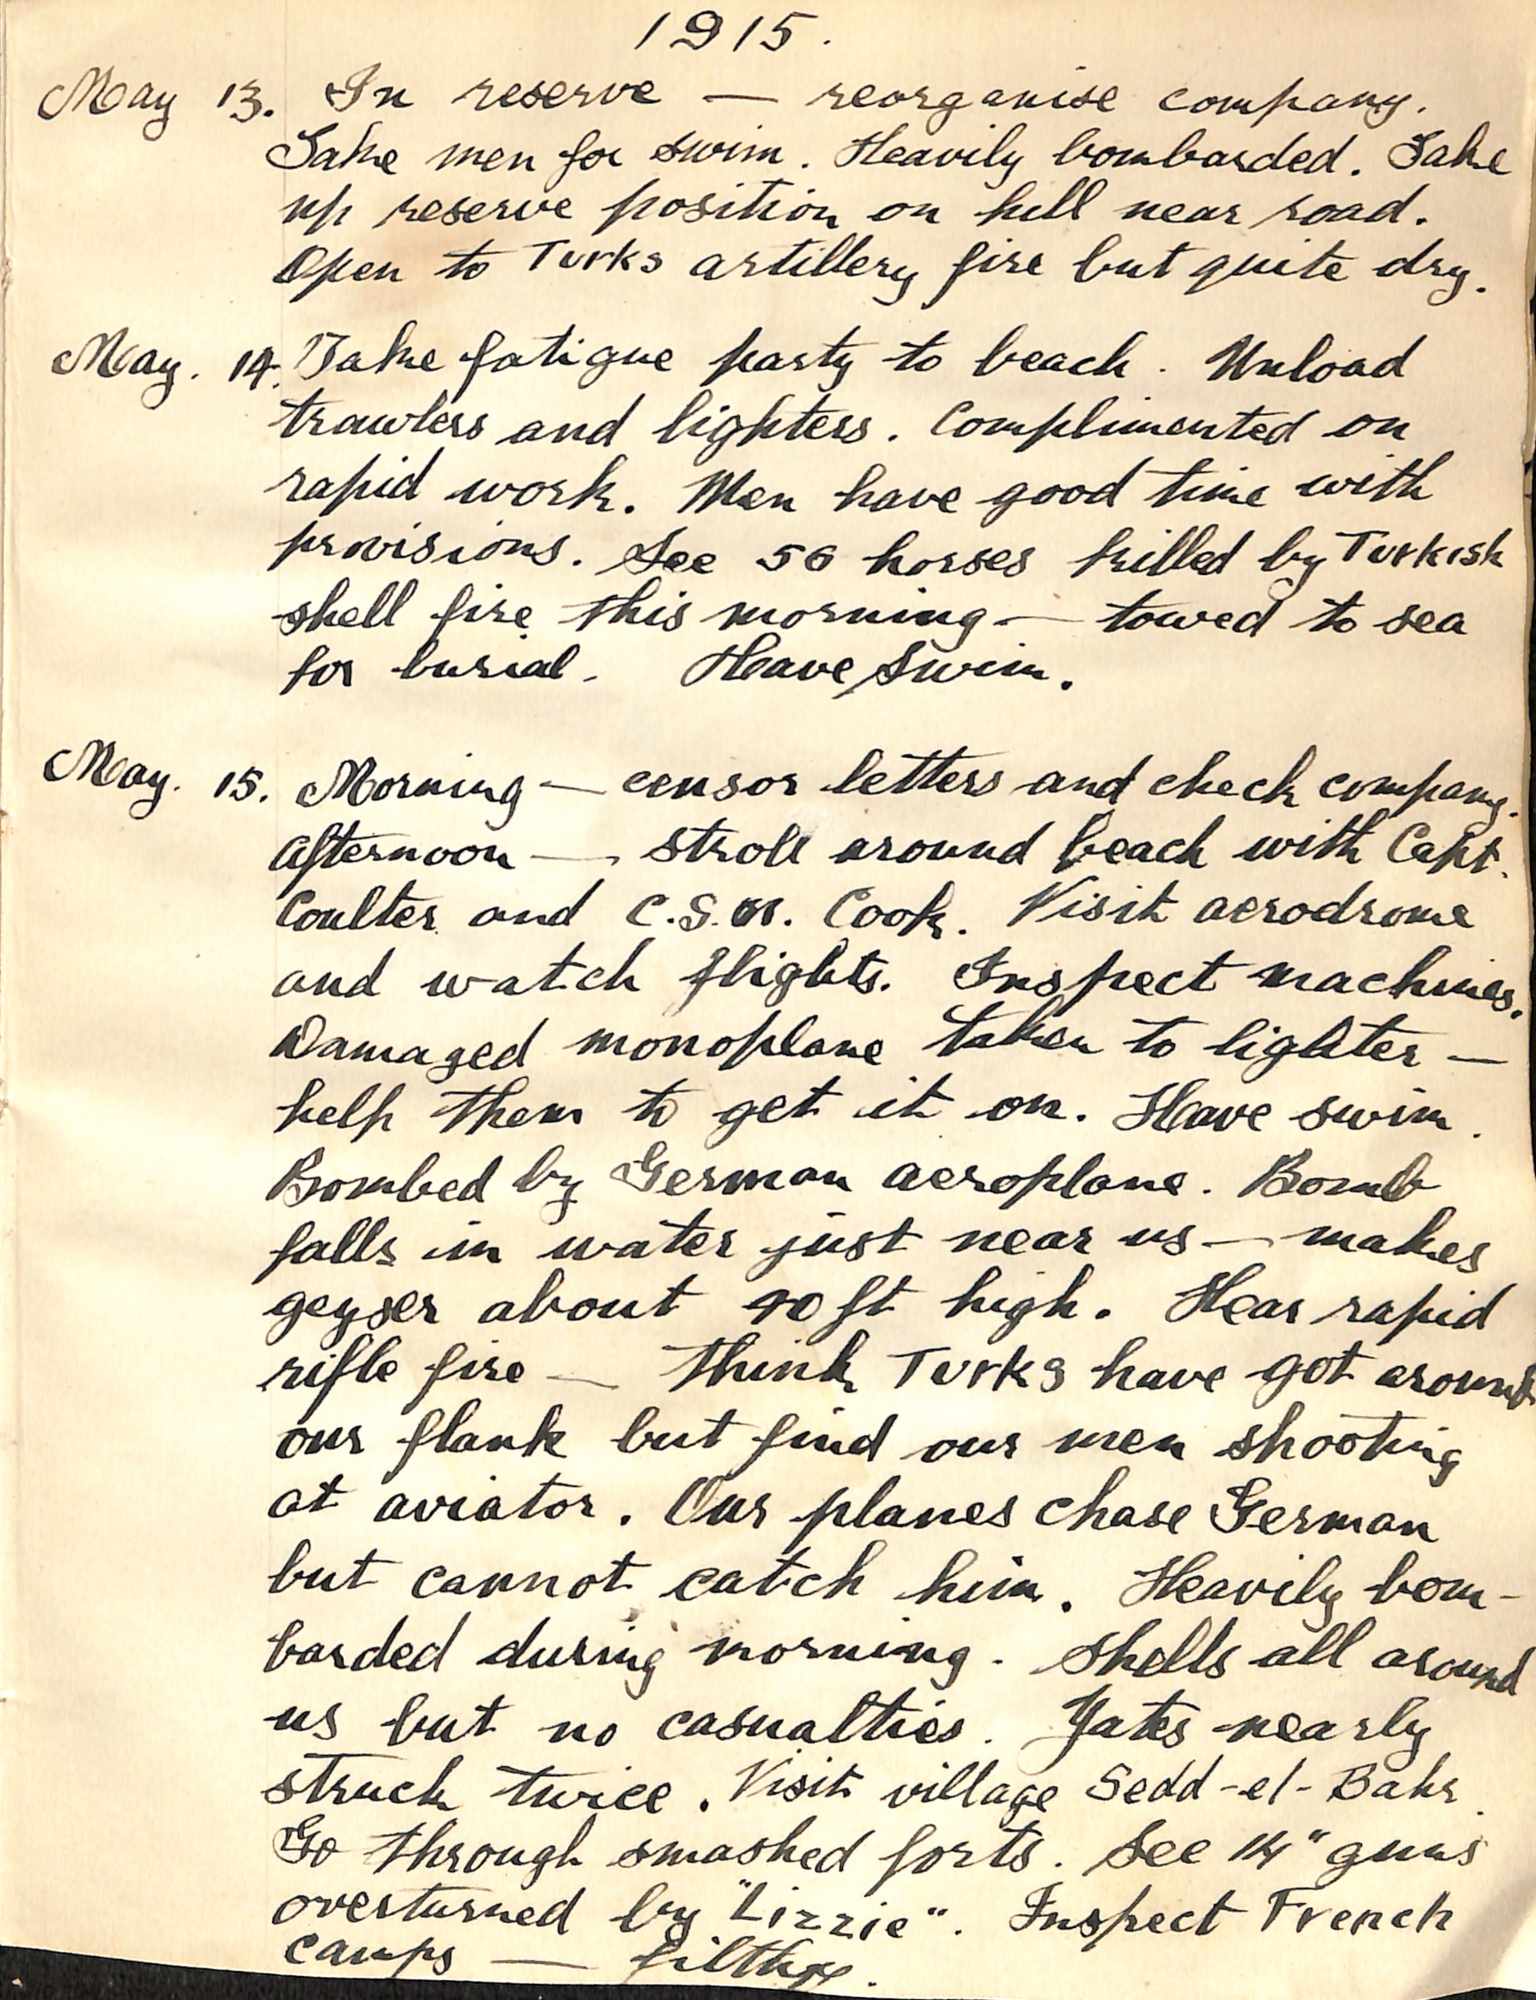 1915.
May 13. In reserve — reorganise company.
Take men for swim. Heavily bombarded. Take
up reserve position on hill near road.
Open to Turks artillery fire but quite dry.
May. 14. Take fatigue party to beach. Unload
trawlers and lighters. Complimented on
rapid work. Men have good time with
provisions. See 56 horses killed by Turkish
shell fire this morning — towed to sea
for burial. Have swim.
May. 15. Morning — censor letters and check company.
Afternoon — stroll around beach with Capt.
Coulter and C.S.M. Cook. Visit aerodrome
and watch flights. Inspect machines.
Damaged monoplane taken to lighter —
help them to get it on. Have swim.
Bombed by German aeroplane. Bomb
falls in water just near us — makes
geyser about 40 ft high. Hear rapid
rifle fire — think Turks have got around
our flank but find our men shooting
at aviator. Our planes chase German
but cannot catch him. Heavily bom-
barded during morning. Shells all around
us but no casualties. Yates nearly
struck twice. Visit village Sedd-el-Bahr.
Go through smashed forts. See 14" guns
overturned by "Lizzie". Inspect French
camps — filthy.